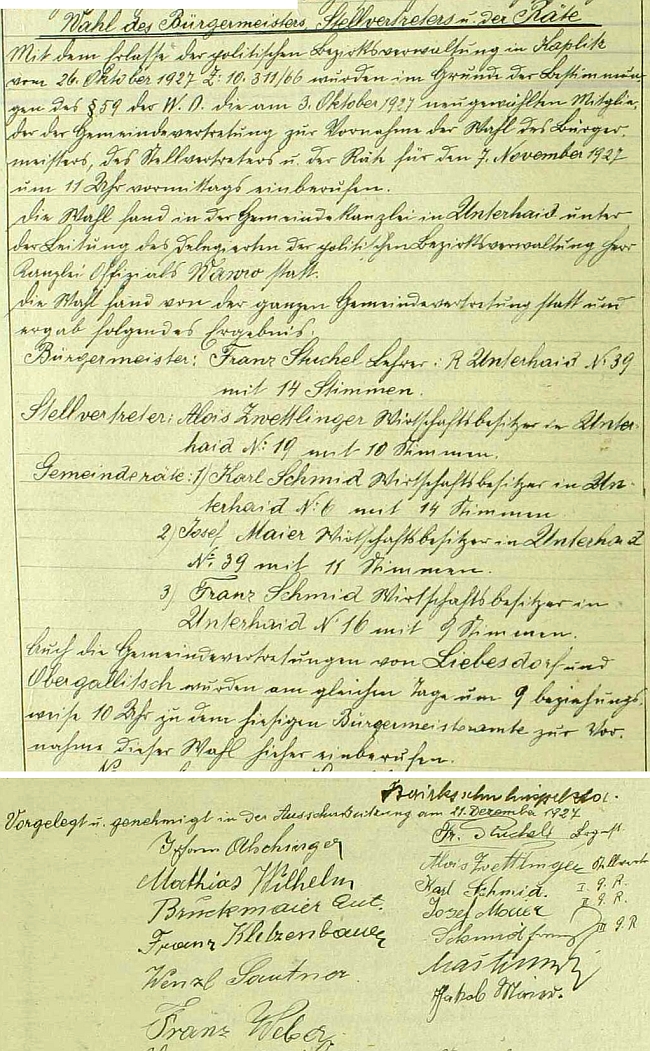 Wahl des Bürgermeisters, Stellvertreters u. der Räte
Mit dem Erlasse der politischen Bezirksverwaltung in Kaplitz
vom 26. Oktober 1927 Z: 10.311/66 wurden im Grunde der Bestimmun-
gen des § 59 der W. O. die am 3. Oktober 1927 neugewählten Mitglie-
der der Gemeindevertretung zur Vornahme der Wahl des Bürger-
meisters, des Stellvertreters u. der Räte für den 7. November 1927
um 11 Uhr vormittags einberufen.
Die Wahl fand in der Gemeindekanzlei in Unterhaid unter
der Leitung des Delegierten der politischen Bezirksverwaltung Herr
Kanzlei Offizials statt.
Die Wahl fand von der ganzen Gemeindevertretung statt und
ergab folgendes Ergebnis:
Bürgermeister: Franz Stuchel Lehrer i. R Unterhaid N: 39
mit 14 Stimmen.
Stellvertreter: Alois Zwettlinger Wirtschaftsbesitzer in Unter-
haid N: 19 mit 10 Stimmen.
Gemeinderäte: 1) Karl Schmid Wirtschaftsbesitzer in Un-
terhaid N: 6 mit 14 Stimmen
2) Josef Maier Wirtschaftsbesitzer in Unterhaid
N: 39 mit 11 Stimmen.
3) Franz Schmid Wirtschaftsbesitzer in
Unterhaid N 16 mit 9 Stimmen.
Auch die Gemeindevertretungen von Liebesdorf und
Obergallitsch wurden am gleichen Tage um 9 beziehungs-
weise 10 Uhr zu dem hiesigen Bürgermeisteramte zur Vor-
nahme dieser Wahl hieher einberufen.
Bezirksschulinspektor.
Vorgelegt u. genehmigt in der Ausschußsitzung am 21. Dezember 1927
Johann
Fr. Stuchel
Mathias Wilhelm
Alois Zwettlinger Stellvertr
Bruckmaier Ant.
Karl Schmid. I. g. R.
Franz Klitzenbauer
Josef II g. R.
Wenzl Sautner
Schmid Franz III g. R
Franz Weber
Jakob